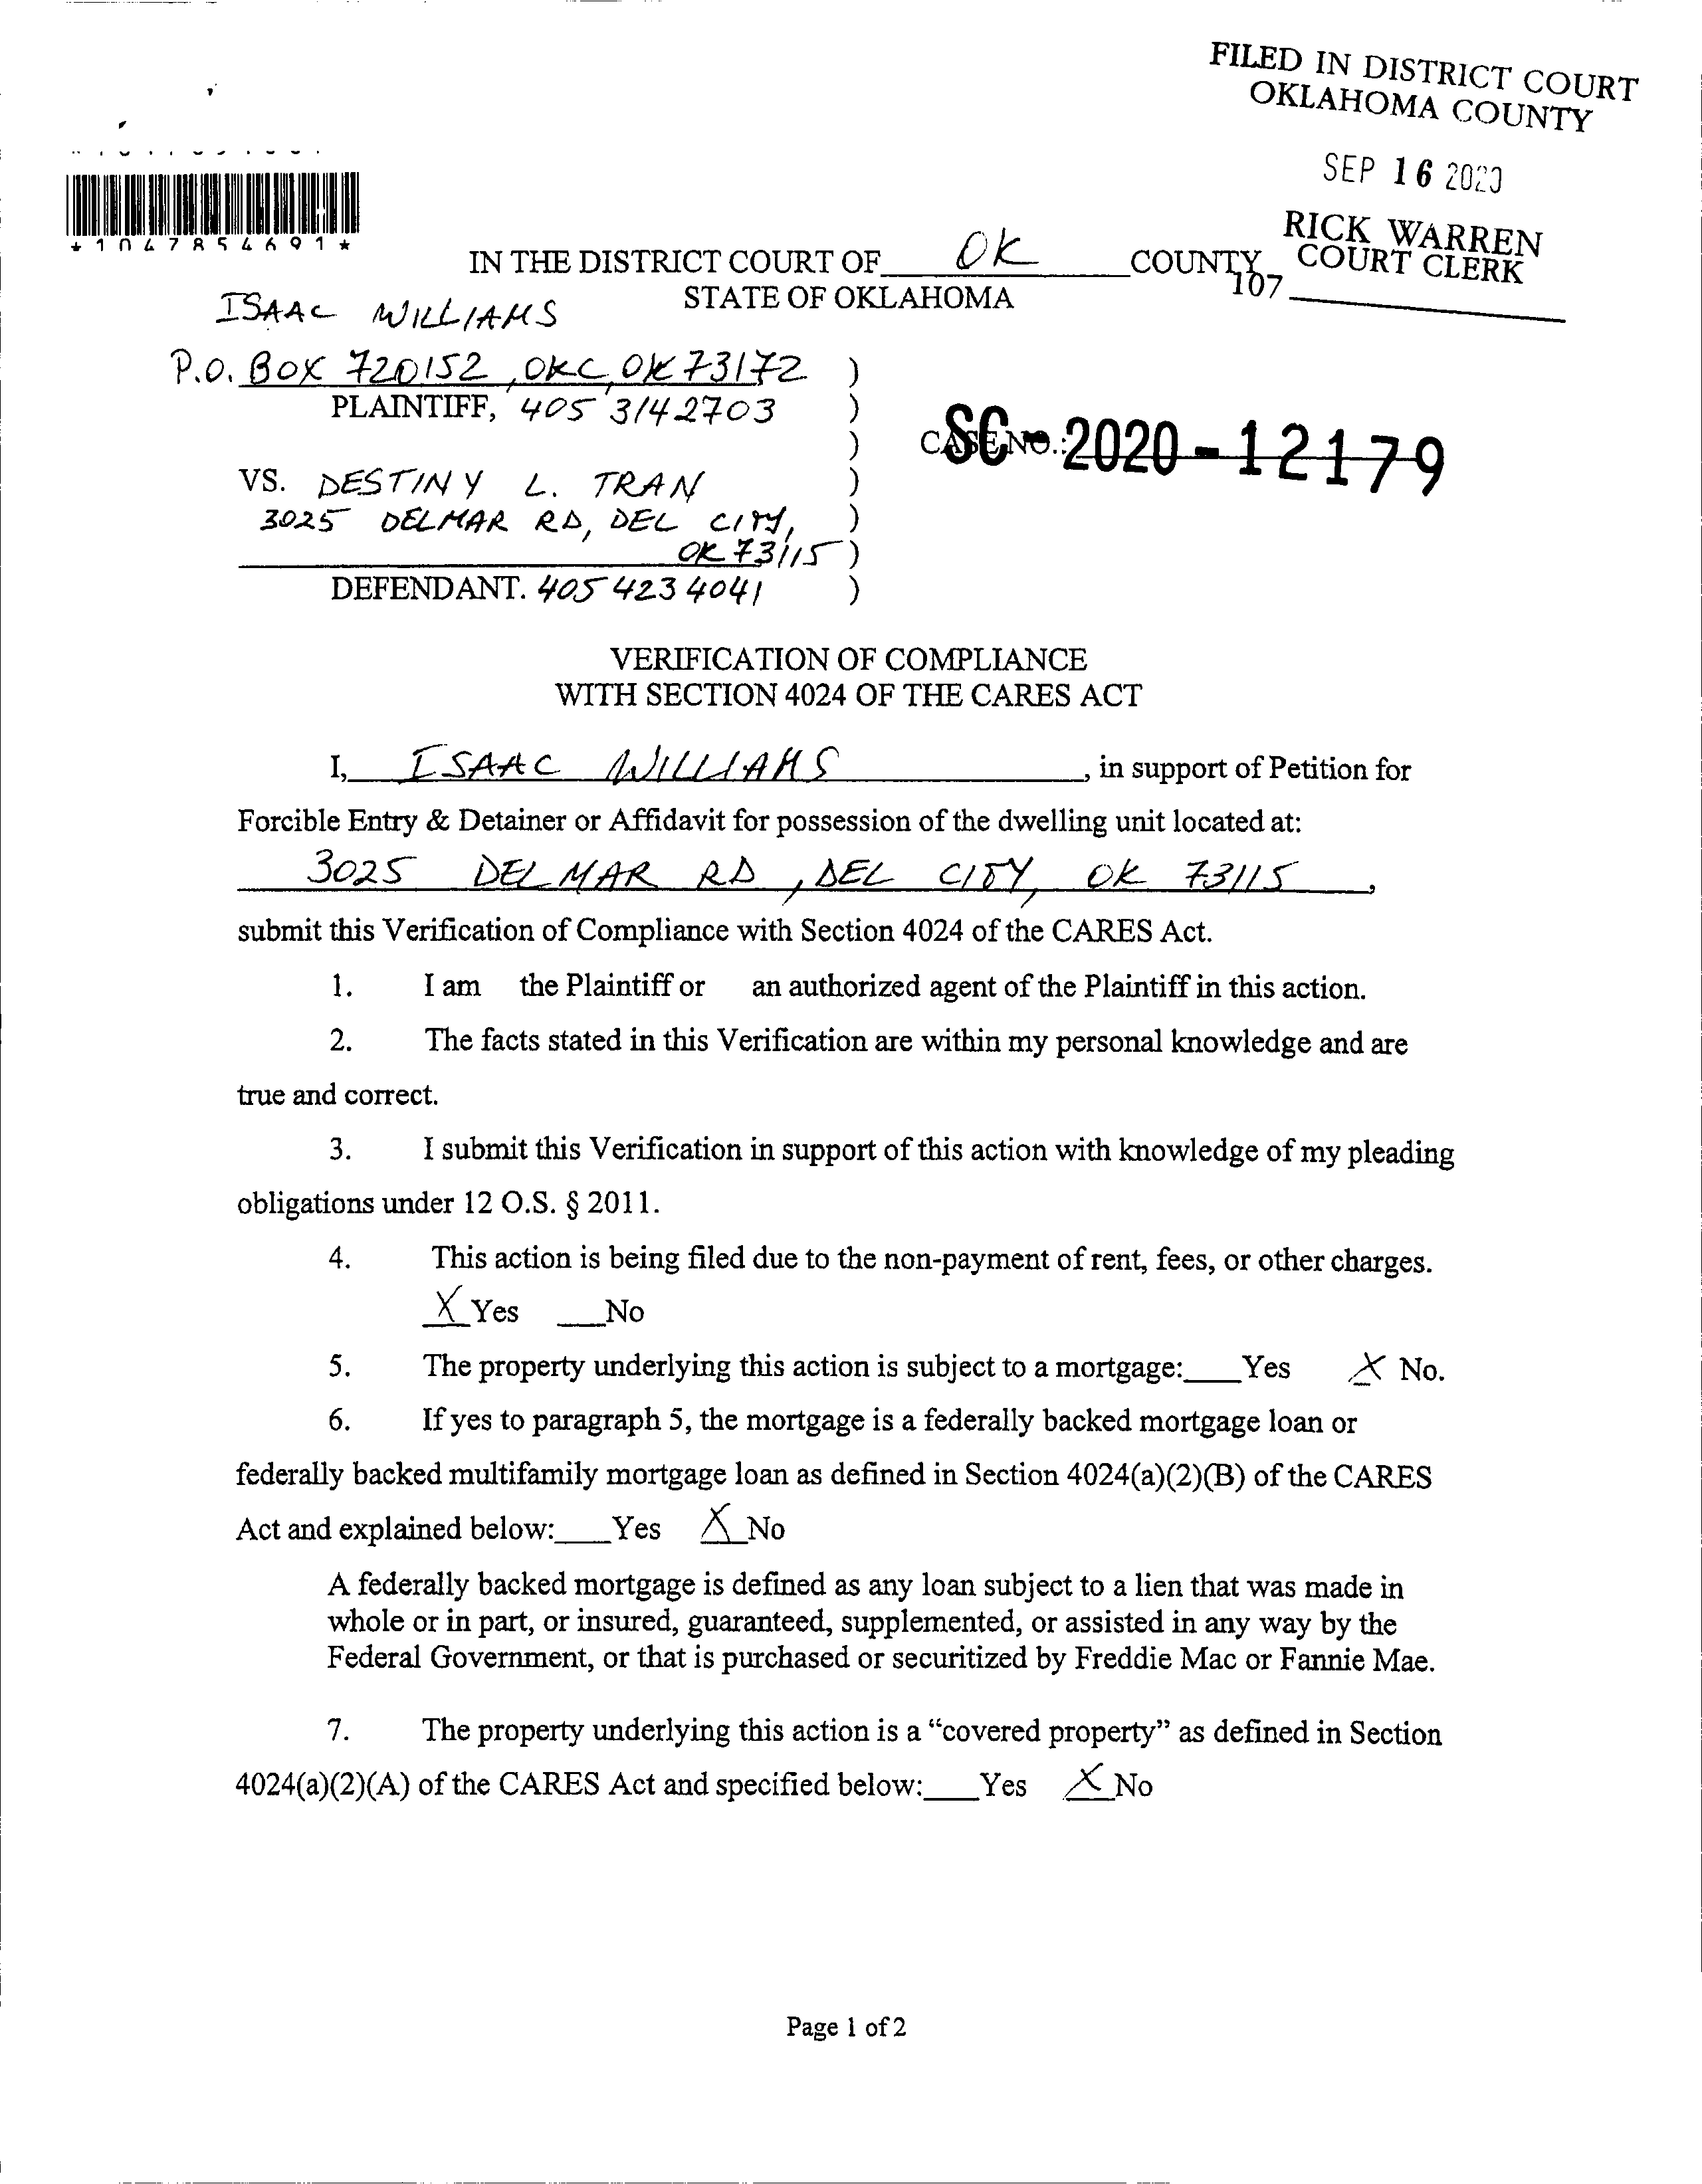 FILED IN DISTRICT COURT
OKLAHOMA COUNTY
SEP 16 2020
RICK WARREN
COURT CLERK
107
*1047854691*
IN THE DISTRICT COURT OF OK COUNTY
STATE OF OKLAHOMA
ISAAC WILLIAMS
P.O. BOX 720152, OKC, OK 73172 )
PLAINTIFF, 405 3142703 )
)
CASE NO.: SC-2020-12179
VS. DESTINY L. TRAN )
3025 DELMAR RD, DEL CITY, )
OK 73115 )
DEFENDANT. 405 423 4041 )
VERIFICATION OF COMPLIANCE
WITH SECTION 4024 OF THE CARES ACT
I, ISAAC WILLIAMS, in support of Petition for
Forcible Entry & Detainer or Affidavit for possession of the dwelling unit located at:
3025 DELMAR RD, DEL CITY, OK 73115,
submit this Verification of Compliance with Section 4024 of the CARES Act.
1. I am the Plaintiff or an authorized agent of the Plaintiff in this action.
2. The facts stated in this Verification are within my personal knowledge and are
true and correct.
3. I submit this Verification in support of this action with knowledge of my pleading
obligations under 12 O.S. § 2011.
4. This action is being filed due to the non-payment of rent, fees, or other charges.
X Yes ___No
5. The property underlying this action is subject to a mortgage:___Yes X No.
6. If yes to paragraph 5, the mortgage is a federally backed mortgage loan or
federally backed multifamily mortgage loan as defined in Section 4024(a)(2)(B) of the CARES
Act and explained below:___Yes X No
A federally backed mortgage is defined as any loan subject to a lien that was made in
whole or in part, or insured, guaranteed, supplemented, or assisted in any way by the
Federal Government, or that is purchased or securitized by Freddie Mac or Fannie Mae.
7. The property underlying this action is a “covered property” as defined in Section
4024(a)(2)(A) of the CARES Act and specified below:___Yes X No
Page 1 of 2